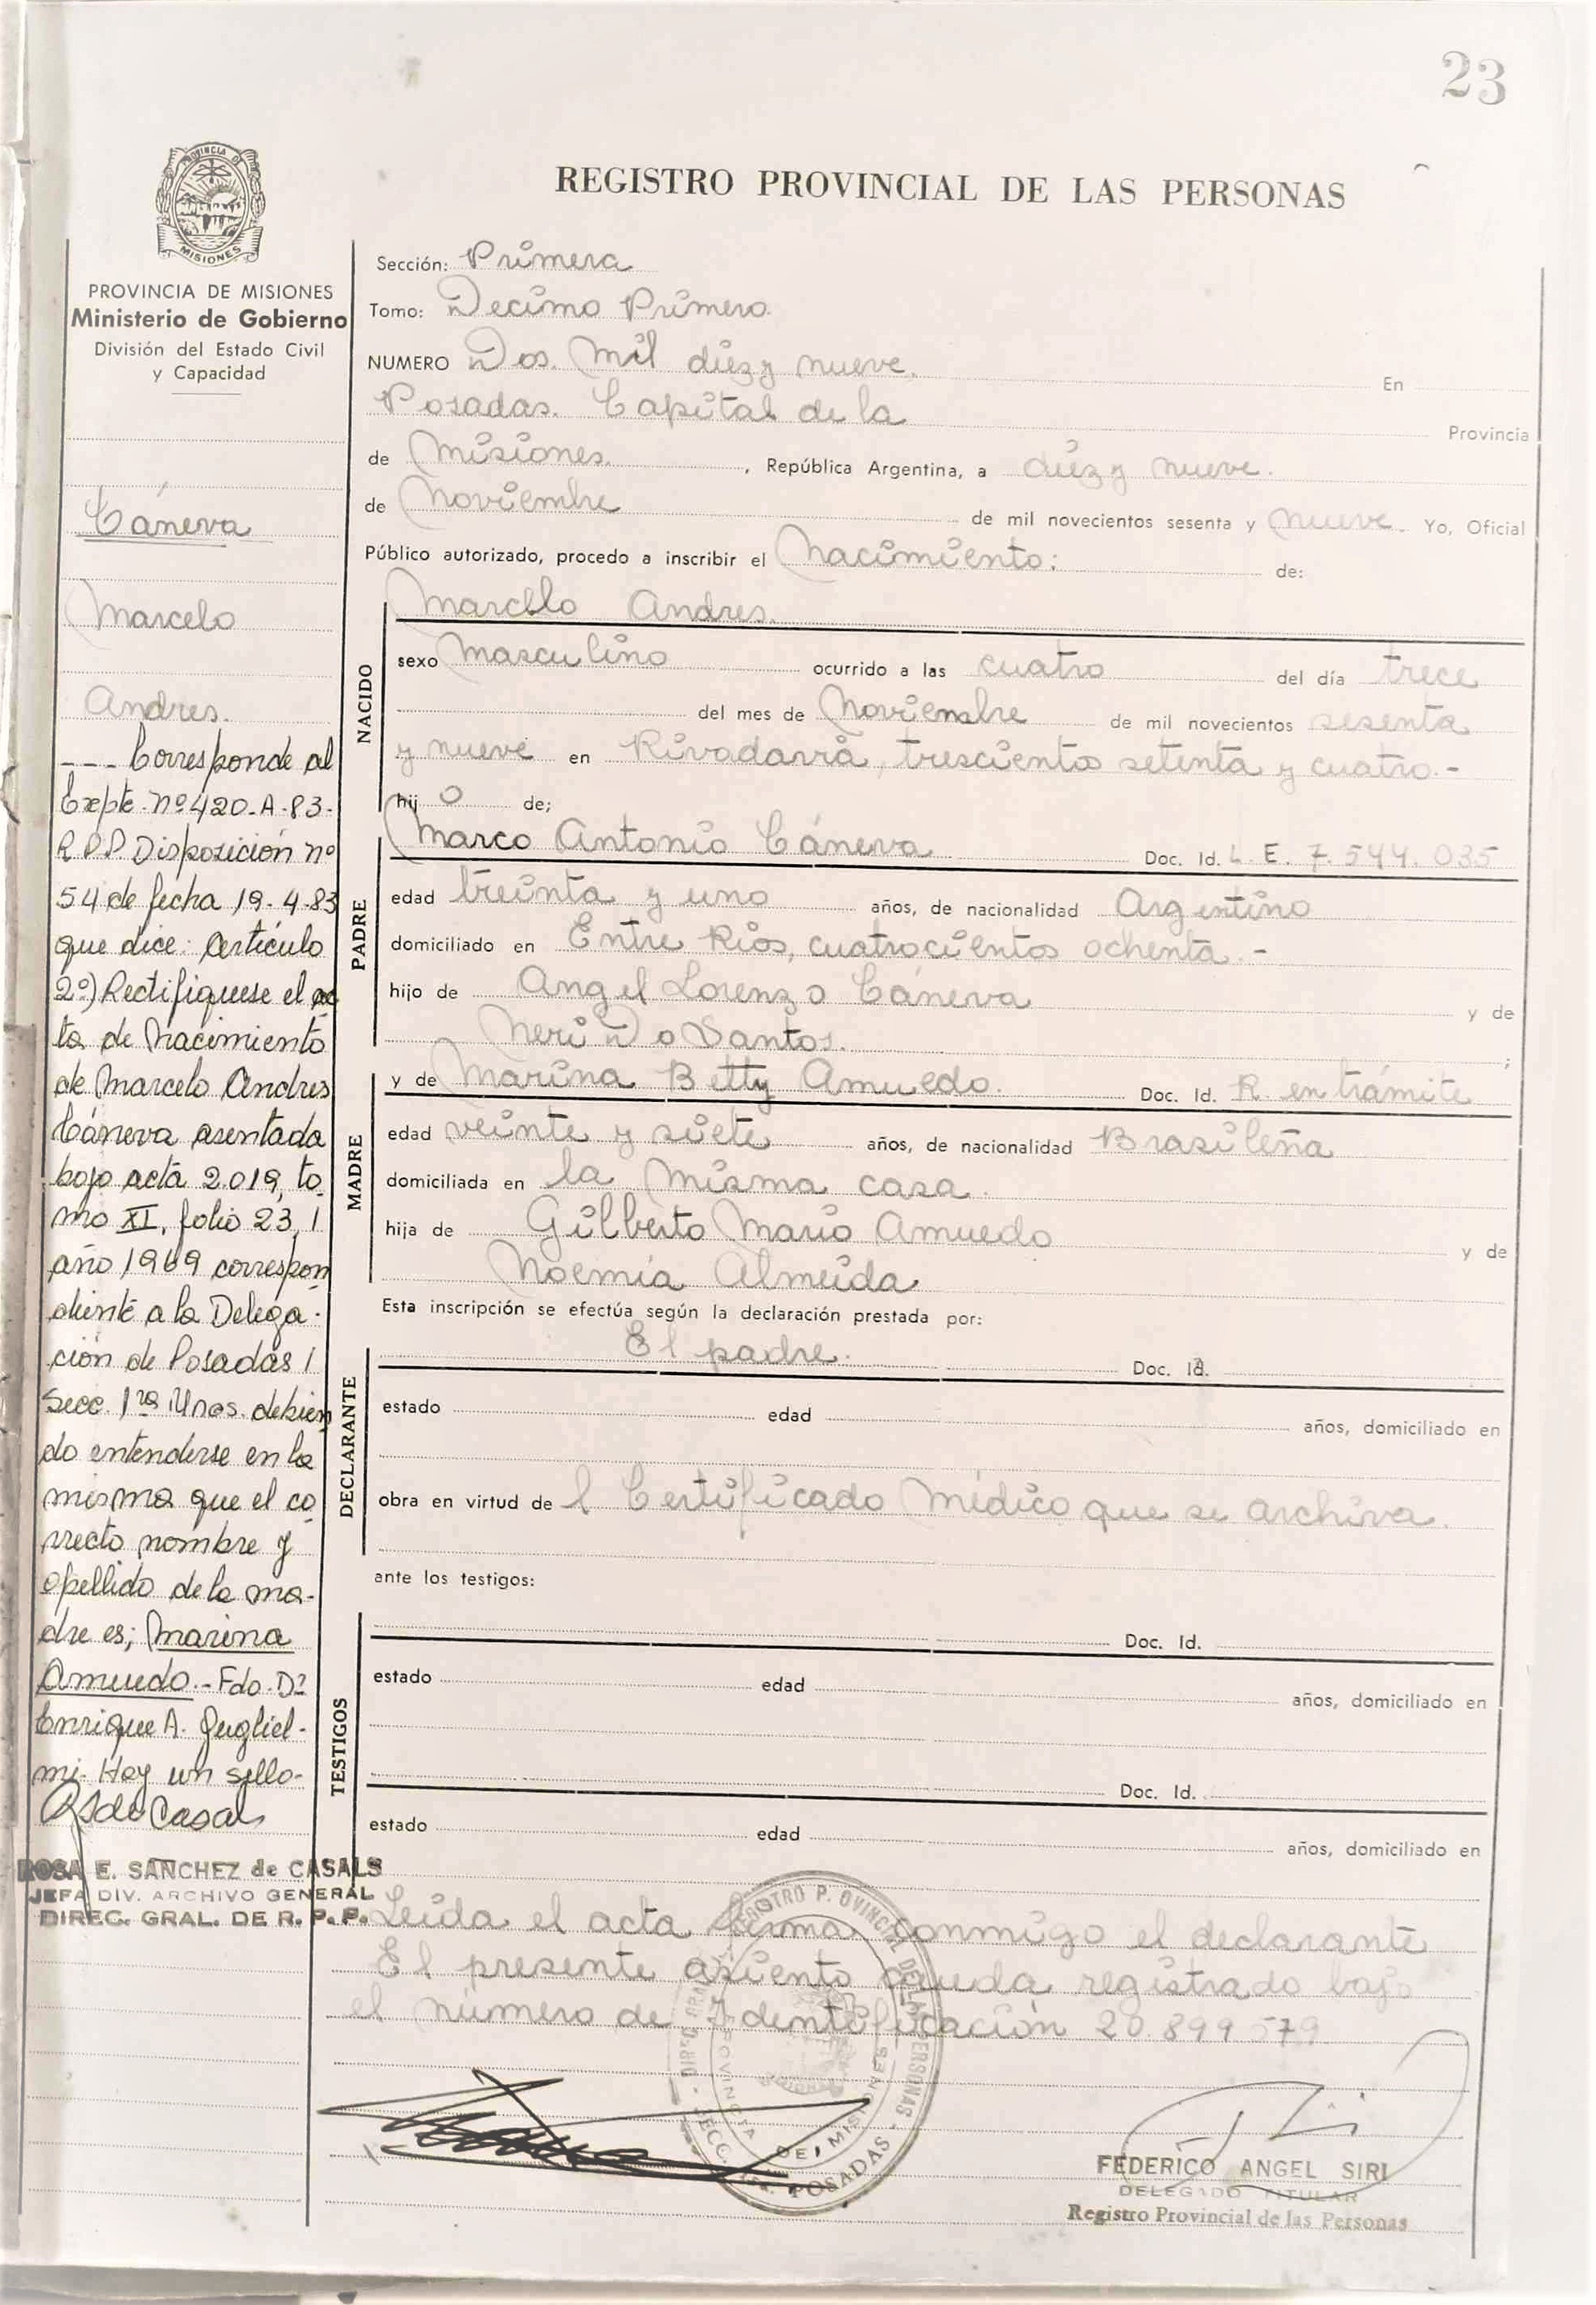 23
PROVINCIA DE
MISIONES
REGISTRO PROVINCIAL DE LAS PERSONAS
PROVINCIA DE MISIONES
Ministerio de Gobierno
División del Estado Civil
y Capacidad
Cáneva
Marcelo
Andres.
--- Corresponde al
Expte. Nº 420-A-83-
R.P.P. Disposición nº
54 de fecha 19-4-83
que dice: Artículo
2º) Rectifiquese el ac
ta de Nacimiento
de Marcelo Andres
Cáneva asentada
bajo acta 2.019, to
mo XI, folio 23,
año 1969 correspon
diente a la Delega-
ción de Posadas
Secc. 1ra Mnes. debien
do entenderse en la
misma que el co
rrecto nombre y
apellido de la ma-
dre es; Marina
Amuedo.- Fdo. Dr
Enrique A. Gugliel-
mi- Hay un sello-
ROSA E. SANCHEZ de CASALS
JEFA DIV. ARCHIVO GENERAL
DIREC. GRAL. DE R. P. P.
Sección: Primera
Tomo: Decimo Primero.
NUMERO Dos. Mil diez y nueve. En
Posadas. Capital de la Provincia
de Misiones. , República Argentina, a diez y nueve.
de Noviembre de mil novecientos sesenta y nueve. Yo, Oficial
Público autorizado, procedo a inscribir el Nacimiento: de:
Marcelo Andres.
NACIDO
sexo Masculino ocurrido a las cuatro del día trece
del mes de Noviembre de mil novecientos sesenta
y nueve en Rivadavia, trescientos setenta y cuatro.-
hij o de;
PADRE
Marco Antonio Cáneva Doc. Id. L. E. 7.544.035
edad treinta y uno años, de nacionalidad Argentino
domiciliado en Entre Rios, cuatrocientos ochenta.-
hijo de Angel Lorenzo Cáneva y de
Neri Do Santos. ;
MADRE
y de Marina Betty Amuedo. Doc. Id. R. en trámite
edad veinte y siete años, de nacionalidad Brasileña
domiciliada en la misma casa.
hija de Gilberto Mario Amuedo y de
Noemia Almeida
Esta inscripción se efectúa según la declaración prestada por:
DECLARANTE
El padre. Doc. Id.
estado edad años, domiciliado en
obra en virtud de l Certificado Médico que se archiva.
ante los testigos:
TESTIGOS
Doc. Id.
estado edad años, domiciliado en
Doc. Id.
estado edad años, domiciliado en
Leida el acta firma conmigo el declarante
El presente asiento queda registrado bajo
el número de Identificación 20.899.579
POSADAS
FEDERICO ANGEL SIRI
DELEGADO TITULAR
Registro Provincial de las Personas